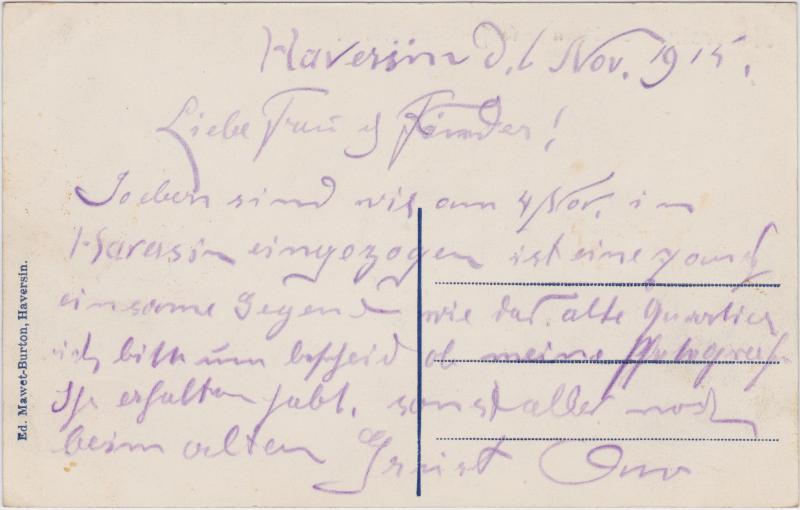 Haversin d. 6 Nov. 1915.
Liebe Frau u Kinder!
Soeben sind wir am 4 Nov. in
Havresin eingezogen ist eine ganz
einsame Gegend wie das alte Quartier
ich bitte um bescheid ob meine Photografie
Ihr erhalten habt. sonst alles noch
beim alten Gruist
Ed. Mawet-Burton, Haversin.